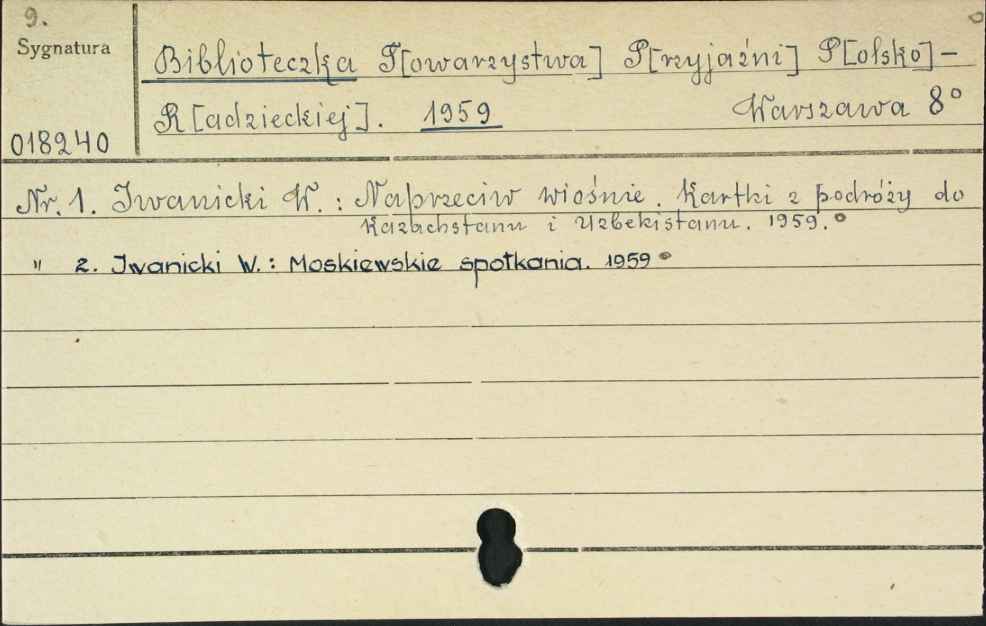 9.
Sygnatura
Biblioteczka T[owarzystwa] P[rzyjaźni] P[olsko]-
R[adzieckiej]. 1959 Warszawa 8°
018240
Nr. 1. Iwanicki W.: Naprzeciw wiośnie. Kartki z podróży do
Kazachstanu i Uzbekistanu. 1959.°
" 2. Iwanicki W.: Moskiewskie spotkania. 1959°